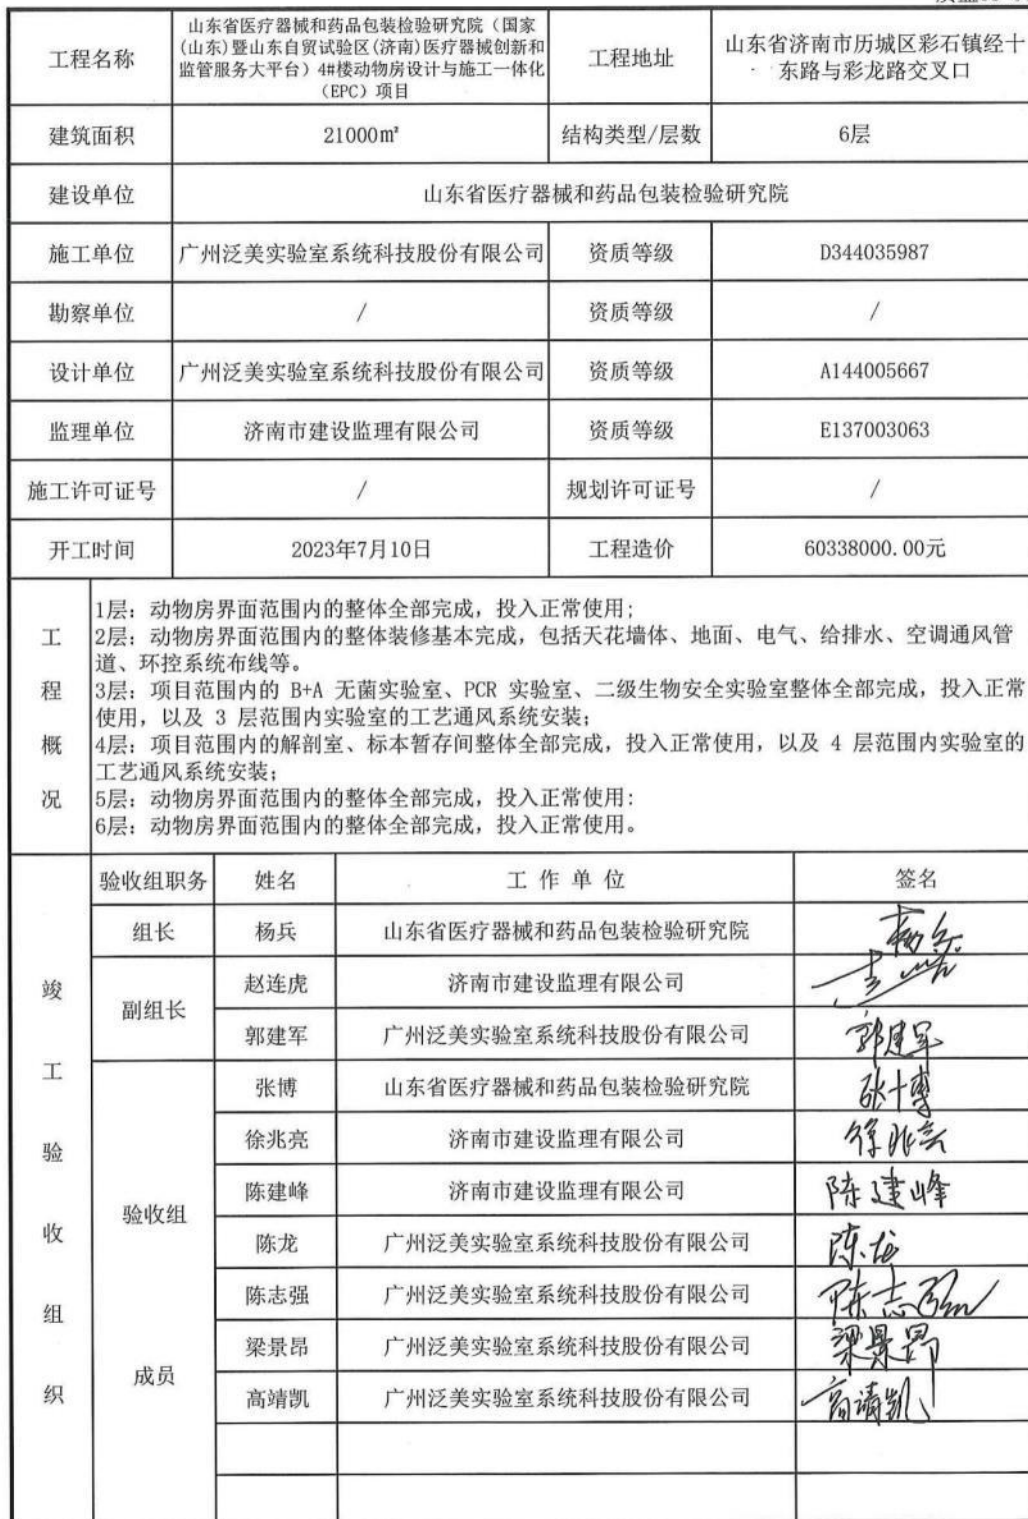 工程名称
山东省医疗器械和药品包装检验研究院（国家
(山东)暨山东自贸试验区(济南)医疗器械创新和
监管服务大平台）4#楼动物房设计与施工一体化
（EPC）项目
工程地址
山东省济南市历城区彩石镇经十
东路与彩龙路交叉口
建筑面积
21000m²
结构类型/层数
6层
建设单位
山东省医疗器械和药品包装检验研究院
施工单位
广州泛美实验室系统科技股份有限公司
资质等级
D344035987
勘察单位
/
资质等级
/
设计单位
广州泛美实验室系统科技股份有限公司
资质等级
A144005667
监理单位
济南市建设监理有限公司
资质等级
E137003063
施工许可证号
/
规划许可证号
/
开工时间
2023年7月10日
工程造价
60338000.00元
工程概况
1层：动物房界面范围内的整体全部完成，投入正常使用;
2层：动物房界面范围内的整体装修基本完成，包括天花墙体、地面、电气、给排水、空调通风管
道、环控系统布线等。
3层：项目范围内的 B+A 无菌实验室、PCR 实验室、二级生物安全实验室整体全部完成，投入正常
使用，以及 3 层范围内实验室的工艺通风系统安装；
4层：项目范围内的解剖室、标本暂存间整体全部完成，投入正常使用，以及 4 层范围内实验室的
工艺通风系统安装；
5层：动物房界面范围内的整体全部完成，投入正常使用:
6层：动物房界面范围内的整体全部完成，投入正常使用。
竣工验收组织
验收组职务
姓名
工 作 单 位
签名
组长
杨兵
山东省医疗器械和药品包装检验研究院
杨兵
副组长
赵连虎
济南市建设监理有限公司
郭建军
广州泛美实验室系统科技股份有限公司
郭建军
验收组
成员
张博
山东省医疗器械和药品包装检验研究院
张博
徐兆亮
济南市建设监理有限公司
徐兆亮
陈建峰
济南市建设监理有限公司
陈建峰
陈龙
广州泛美实验室系统科技股份有限公司
陈龙
陈志强
广州泛美实验室系统科技股份有限公司
陈志强
梁景昂
广州泛美实验室系统科技股份有限公司
梁景昂
高靖凯
广州泛美实验室系统科技股份有限公司
高靖凯